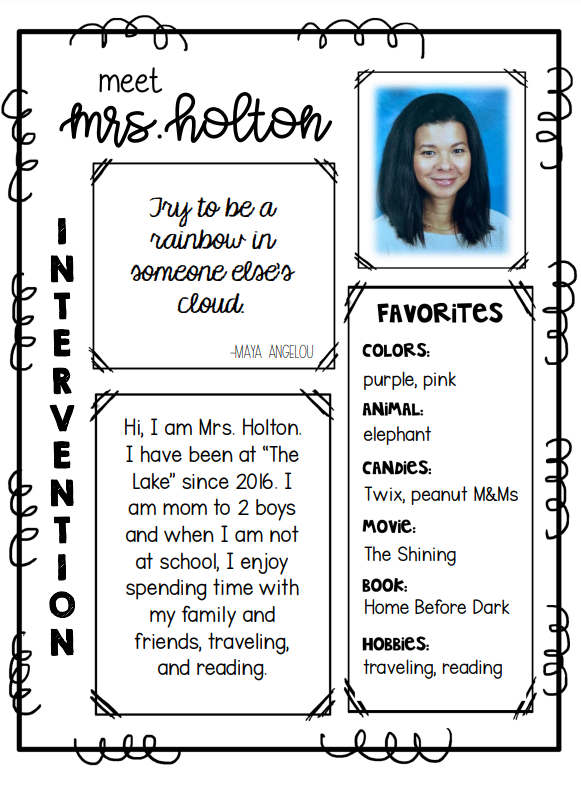 meet
mrs. holton
INTERVENTION
Try to be a
rainbow in
someone else's
cloud.
-MAYA ANGELOU
Hi, I am Mrs. Holton.
I have been at "The
Lake" since 2016. I
am mom to 2 boys
and when I am not
at school, I enjoy
spending time with
my family and
friends, traveling,
and reading.
FAVORiTES
COLORS:
purple, pink
ANiMAL:
elephant
CANDiES:
Twix, peanut M&Ms
MOViE:
The Shining
BOOK:
Home Before Dark
HOBBiES:
traveling, reading